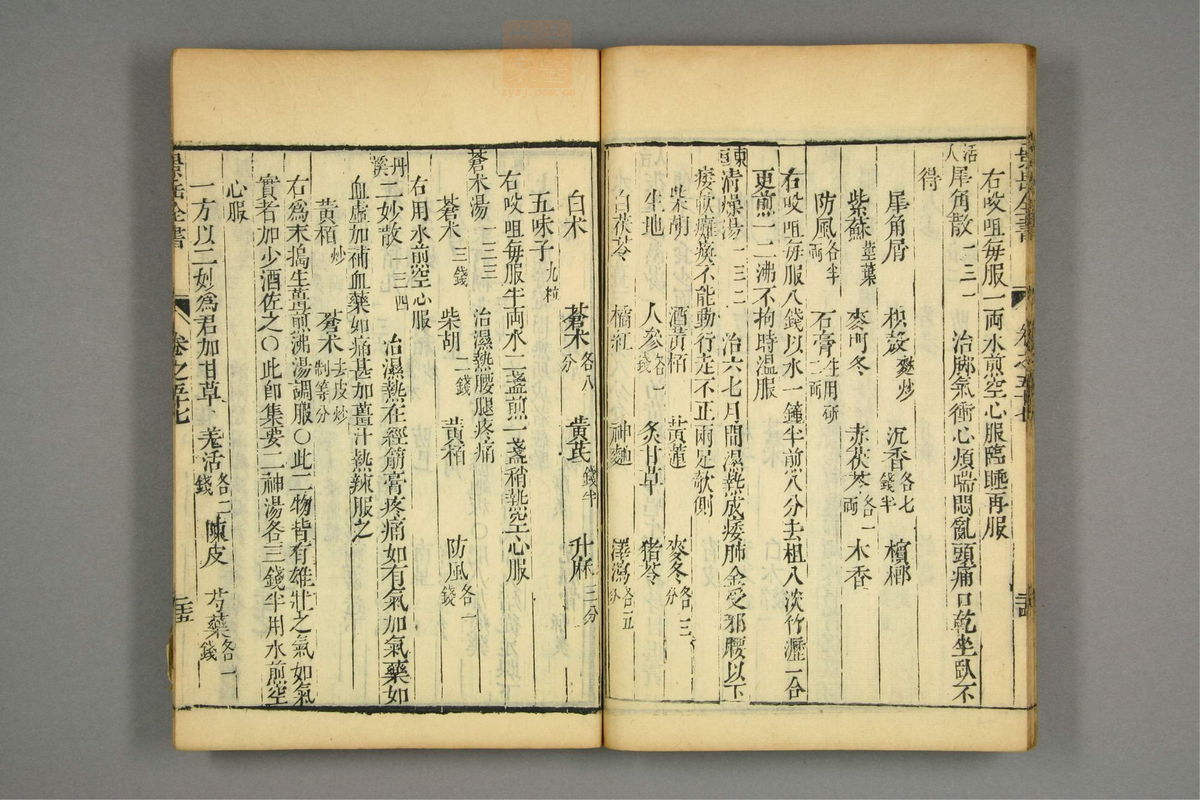 景岳全書
卷之五十七
二十四
右㕮咀每服一兩水煎空心服臨睡再服
活人犀角散一三一　治脚氣衝心煩喘悶亂頭痛口乾坐臥不
得
犀角屑　枳殼麩炒　沉香各七錢半　檳榔
紫蘇莖葉　麥門冬　赤茯苓各一兩　木香
防風各半兩　石膏生用研二兩
右㕮咀每服八錢以水一鍾半煎八分去柤入淡竹瀝一合
更煎一二沸不拘時溫服
東垣清燥湯一三二　治六七月間濕熱成痿肺金受邪腰以下
痿軟癱瘓不能動行走不正兩足欹側
柴胡　酒黃栢　黃連　麥冬各三分
生地　人參各一錢　炙甘草　猪苓
白茯苓　橘紅　神麯　澤瀉各五分
白术　蒼术各八分　黃芪錢半　升麻三分
五味子九粒
右㕮咀每服半兩水二盞煎一盞稍熱空心服
蒼术湯一三三　治濕熱腰腿疼痛
蒼术三錢　柴胡二錢　黃栢　防風各一錢
右用水煎空心服
丹溪二妙散一三四　治濕熱在經筋骨疼痛如有氣加氣藥如
血虛加補血藥如痛甚加薑汁熱辣服之
黃栢炒　蒼术去皮炒制等分
右爲末搗生薑煎沸湯調服○此二物皆有雄壯之氣如氣
實者加少酒佐之○此卽集要二神湯各三錢半用水煎空
心服
一方以二妙爲君加甘草　羌活各二錢　陳皮　芍藥各一錢
景岳全書
卷之五十七
二十五